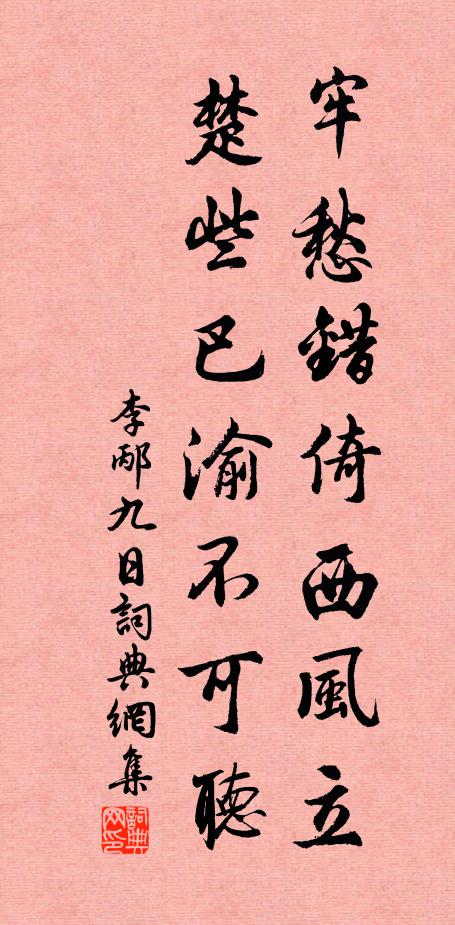 牢愁錯倚西風立
楚些巴渝不可聽
李邴九日詞典網集
詞典网印